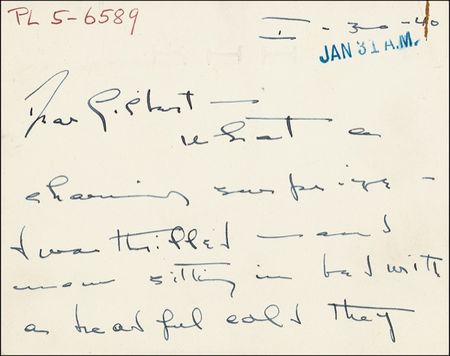 PL 5-6589
I - 30 - 40
JAN 31 A.M.
Dear Gilbert —
What a
charming surprize -
I was thrilled — and
now sitting in bed with
a head ful cold they